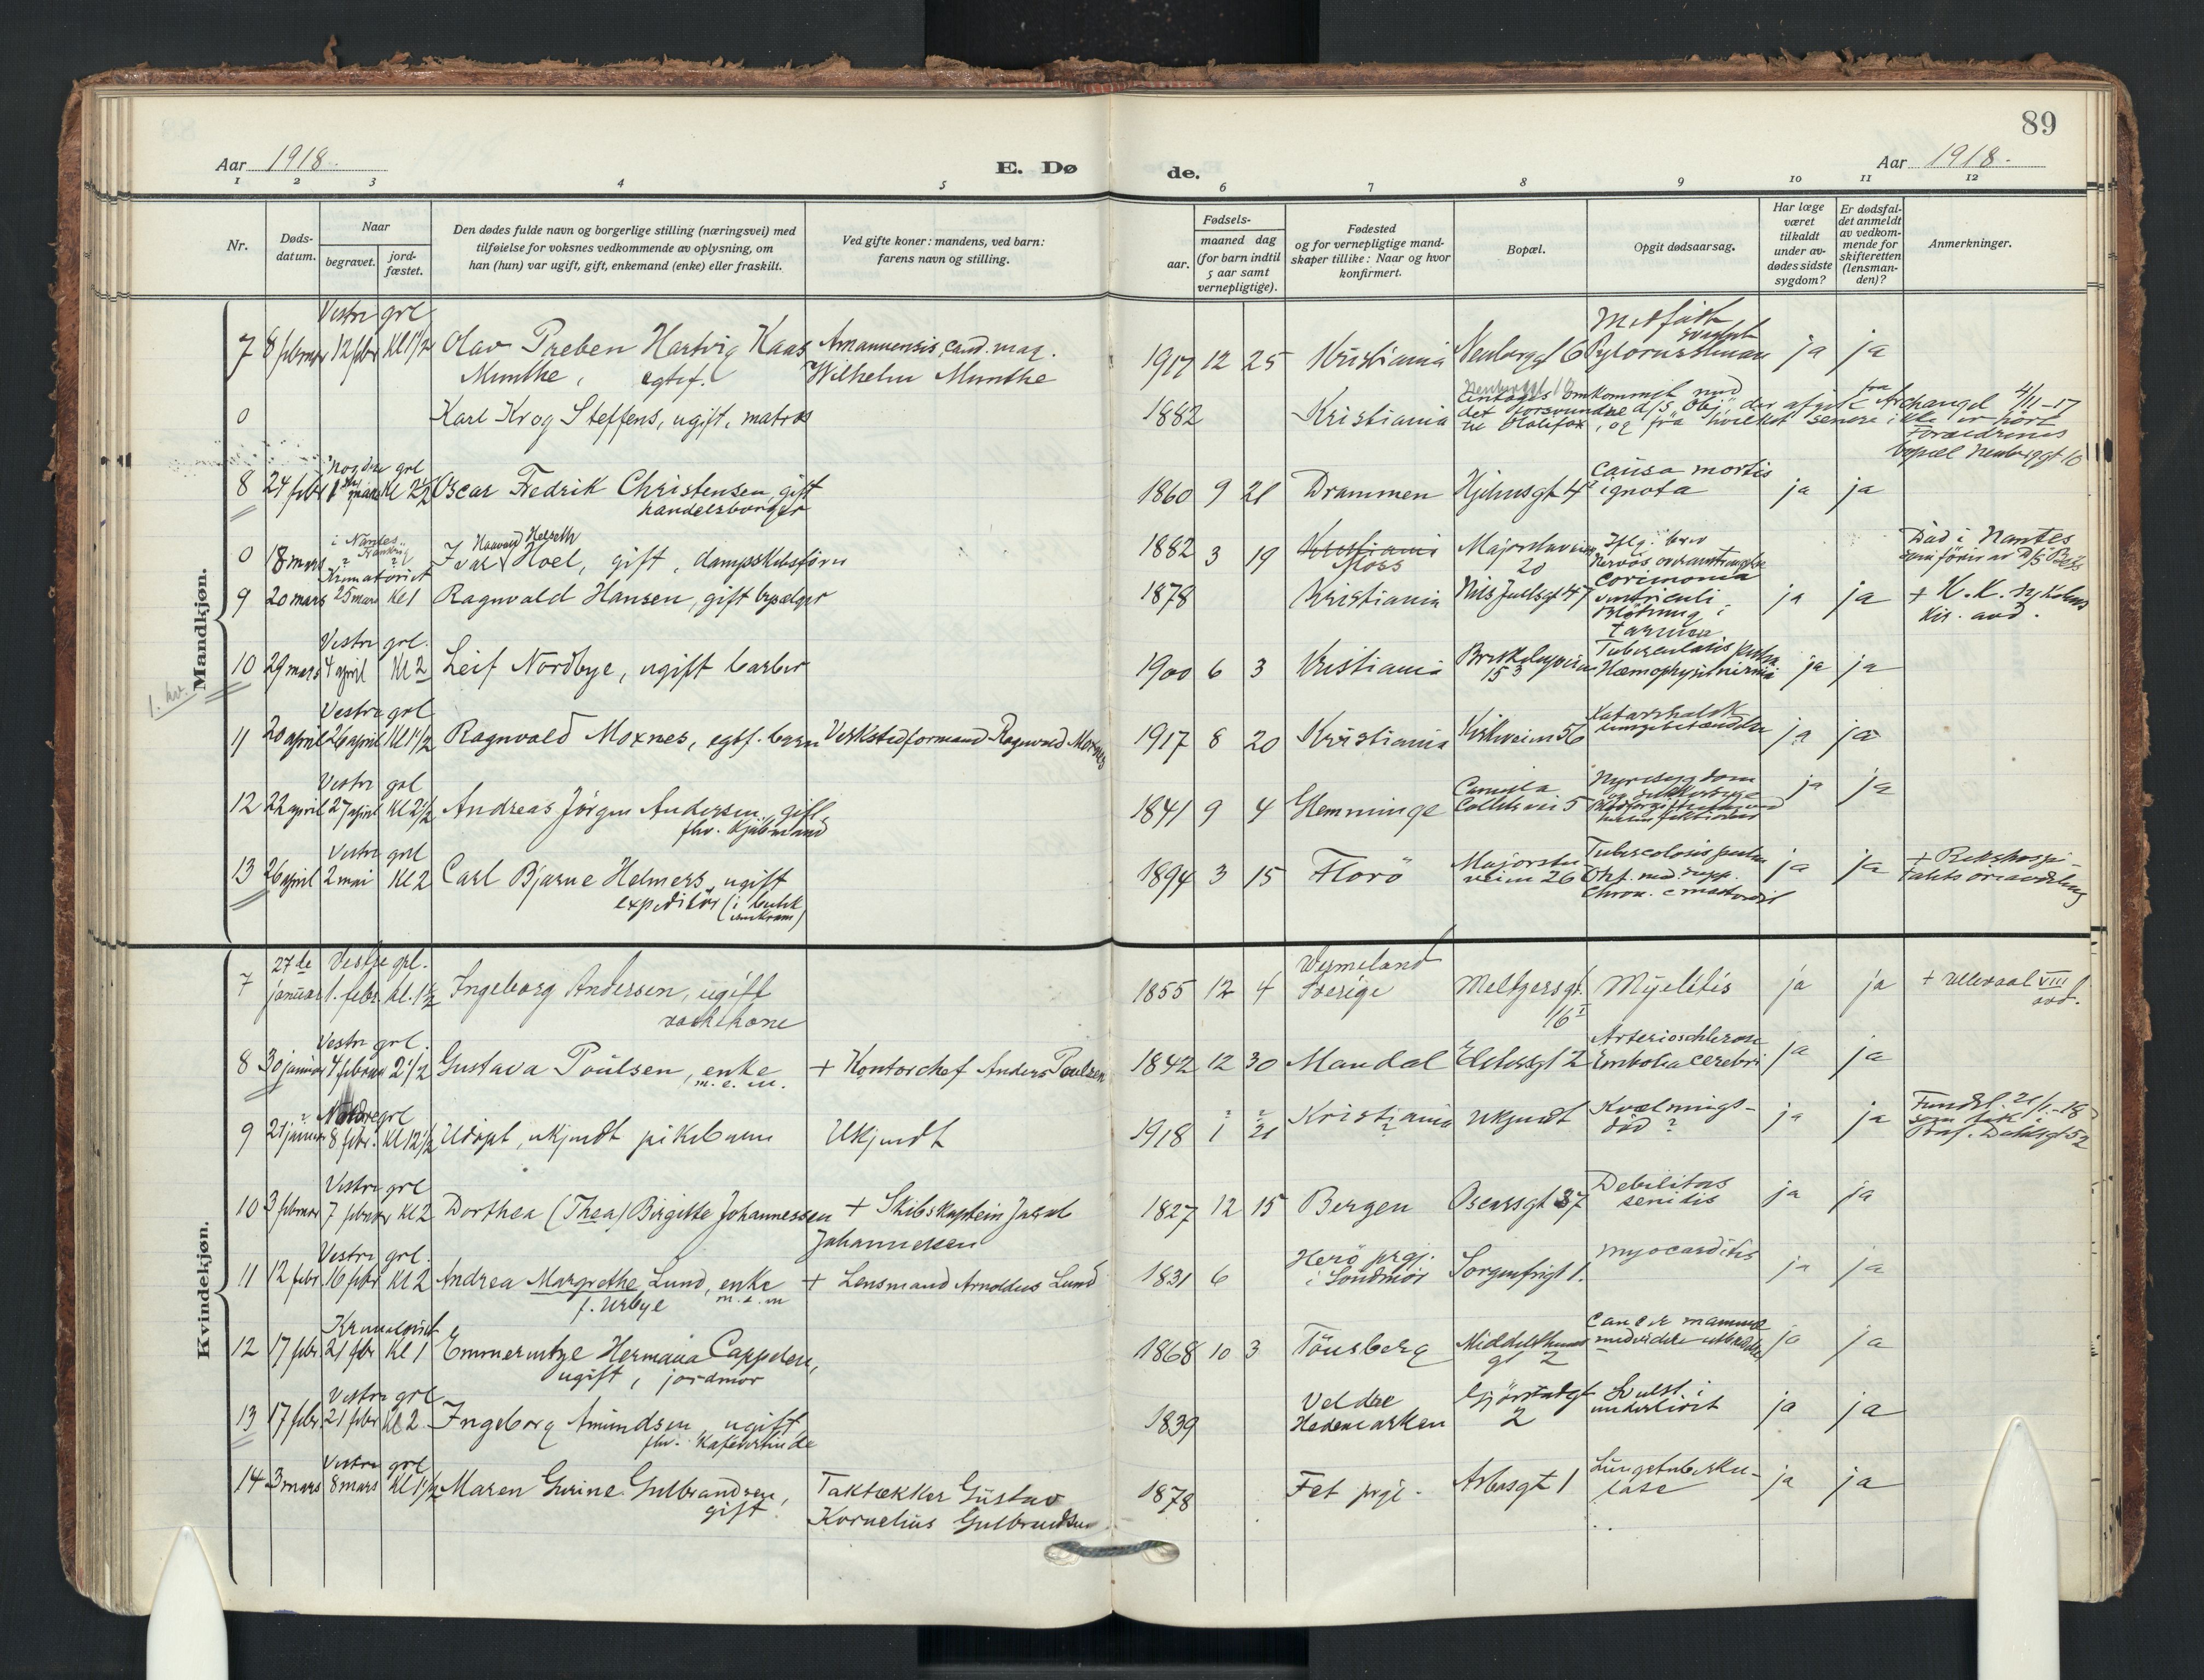 89
Aar 1918.
E. Døde.
Aar 1918.
1 2 3 4 5 6 7 8 9 10 11 12
Nr.
Døds-
datum.
Naar
begravet.
jord-
fæstet.
Den dødes fulde navn og borgerlige stilling (næringsvei) med
tilføielse for voksnes vedkommende av oplysning, om
han (hun) var ugift, gift, enkemand (enke) eller fraskilt.
Ved gifte koner: mandens, ved barn:
farens navn og stilling.
Fødsels-
aar.
maaned dag
(for barn indtil
5 aar samt
vernepligtige).
Fødested
og for vernepligtige mand-
skaper tillike: Naar og hvor
konfirmert.
Bopæl.
Opgit dødsaarsag.
Har læge
været
tilkaldt
under av-
dødes sidste
sygdom?
Er dødsfal-
det anmeldt
av vedkom-
mende for
skifteretten
(lensman-
den)?
Anmerkninger.
Mandkjøn.
1. kv.
Vestre grl
7 8 februar 12 febr Kl 1 1/2 Olav Preben Hartvig Kaas Amanuensis, cand. mag. 1917 12 25 Kristiania Neubergt 6 Medfødt Pylorusstenose ja ja
Munthe, egtef. Wilhelm Munthe
0 Karl Krog Steffens, ugift, matros 1882 Kristiania
Antages omkommet med
det forsvundne d/s "Obj" der afgik fra Archangel 4/11-17
til Halifax, og fra hvilket senere ikke er hørt
Forældrenes
bopæl Neuberggt 10
Nordre grl
8 24 febr 1 mars Kl 2 1/2 Oscar Fredrik Christensen, gift 1860 9 21 Drammen causa mortis ja ja
handelsborger ignota
i Nantes
Frankrig
0 18 mars Ivar Haavald Helseth Hoel, gift, dampskibsfører 1882 3 19 Kristiania Majorstuveien Iflg. brev Død i Nantes
Moss 20 Nervøs overanstrengelse som fører av D/S
Krematoriet
9 20 mars 25 mars Kl 1 Ragnvald Hansen, gift 1878 Kristiania Nils Juelsgt 47 ventriculi ja ja
Blødning i
tarmen
Vestre grl.
10 29 mars 4 april Kl 2 Leif Nordbye, ugift barber 1900 6 3 Kristiania Tuberculosis pulm ja ja
15 3
Vestre grl
11 20 april 26 april Kl 1 1/2 Ragnvald Moxnes, egtf. barn Verkstedformand Ragnvald Moxnes 1917 8 20 Kristiania Kirkeveien 56 Katarrhalsk ja ja
lungebetændelse
Vestre grl
12 22 april 27 april Kl 2 1/2 Andreas Jörgen Andersen, gift, 1841 9 4 Glemminge Camilla Nyresygdom ja ja
fhv. Kjøbmand Collets vei 5
Vestre grl
13 26 april 2 mai Kl 2 Carl Bjarne Helmers, ugift 1894 3 15 Florö Majorstu- Tuberculosis pulm ja ja + Rikshospi-
expeditör (i butik veien 26 Ot. med. supp. talets öreavdeling
chron. c mastoidit
Kvindekjøn.
27de Vestre grl.
7 januar 1. febr. kl. 1 1/2 Ingeborg Andersen, ugift 1855 12 4 Vermeland Meltzersgt. Myelitis ja ja + Ullevaal VIII
vaskekone Sverige avd.
Vestre grl.
8 30 januar 4 februar 2 1/2 Gustava Poulsen, enke + Kontorchef Anders Poulsen 1842 12 30 Mandal Eilertsgt 2 Embolia cerebri ja ja
m. e. m.
Nordre grl
9 21 januar 8 febr. Kl 12 1/2 Udøpt, ukjendt pikebarn Ukjendt 1918 1 21 Kristiania ? ukjendt Kvælnings- ja ja Fundet 21/1-18
død ? som lik i
Prof. Dahlsgt 52
Vestre grl
10 3 februar 7 februar Kl 2 Dorthea (Thea) Birgitte Johannessen + Skibskaptein Jacob 1827 12 15 Bergen Oscarsgt 37 Debilitas ja ja
Johannessen senilis
Vestre grl.
11 12 febr 16 febr Kl 2 Andrea Margrethe Lund, enke + Lensmand Arnoldus Lund 1831 6 Herö prgj. Sorgenfrigt 1. Myocarditis ja ja
f. Urbye m. e. m i Söndmör
Krematoriet
12 17 febr 21 febr Kl 1 Emmerentze Hermana Cappelen, 1868 10 3 Tönsberg Middelthuns Cancer mammae ja ja
ugift, jordmor gt 2
Vestre grl
13 17 febr 21 febr Kl 2 Ingeborg Amundsen, ugift 1839 Veldre Svulst i ja ja
fhv. Kafévertinde Hedemarken 2 underlivet
Vestre grl
14 3 mars 8 mars Kl 1 1/2 Maren Gurine Gulbrandsen, Taktækker Gustav 1878 Fet prgj. Arbosgt 1 Lungetuberku- ja ja
gift. Kornelius Gulbrandsen lose